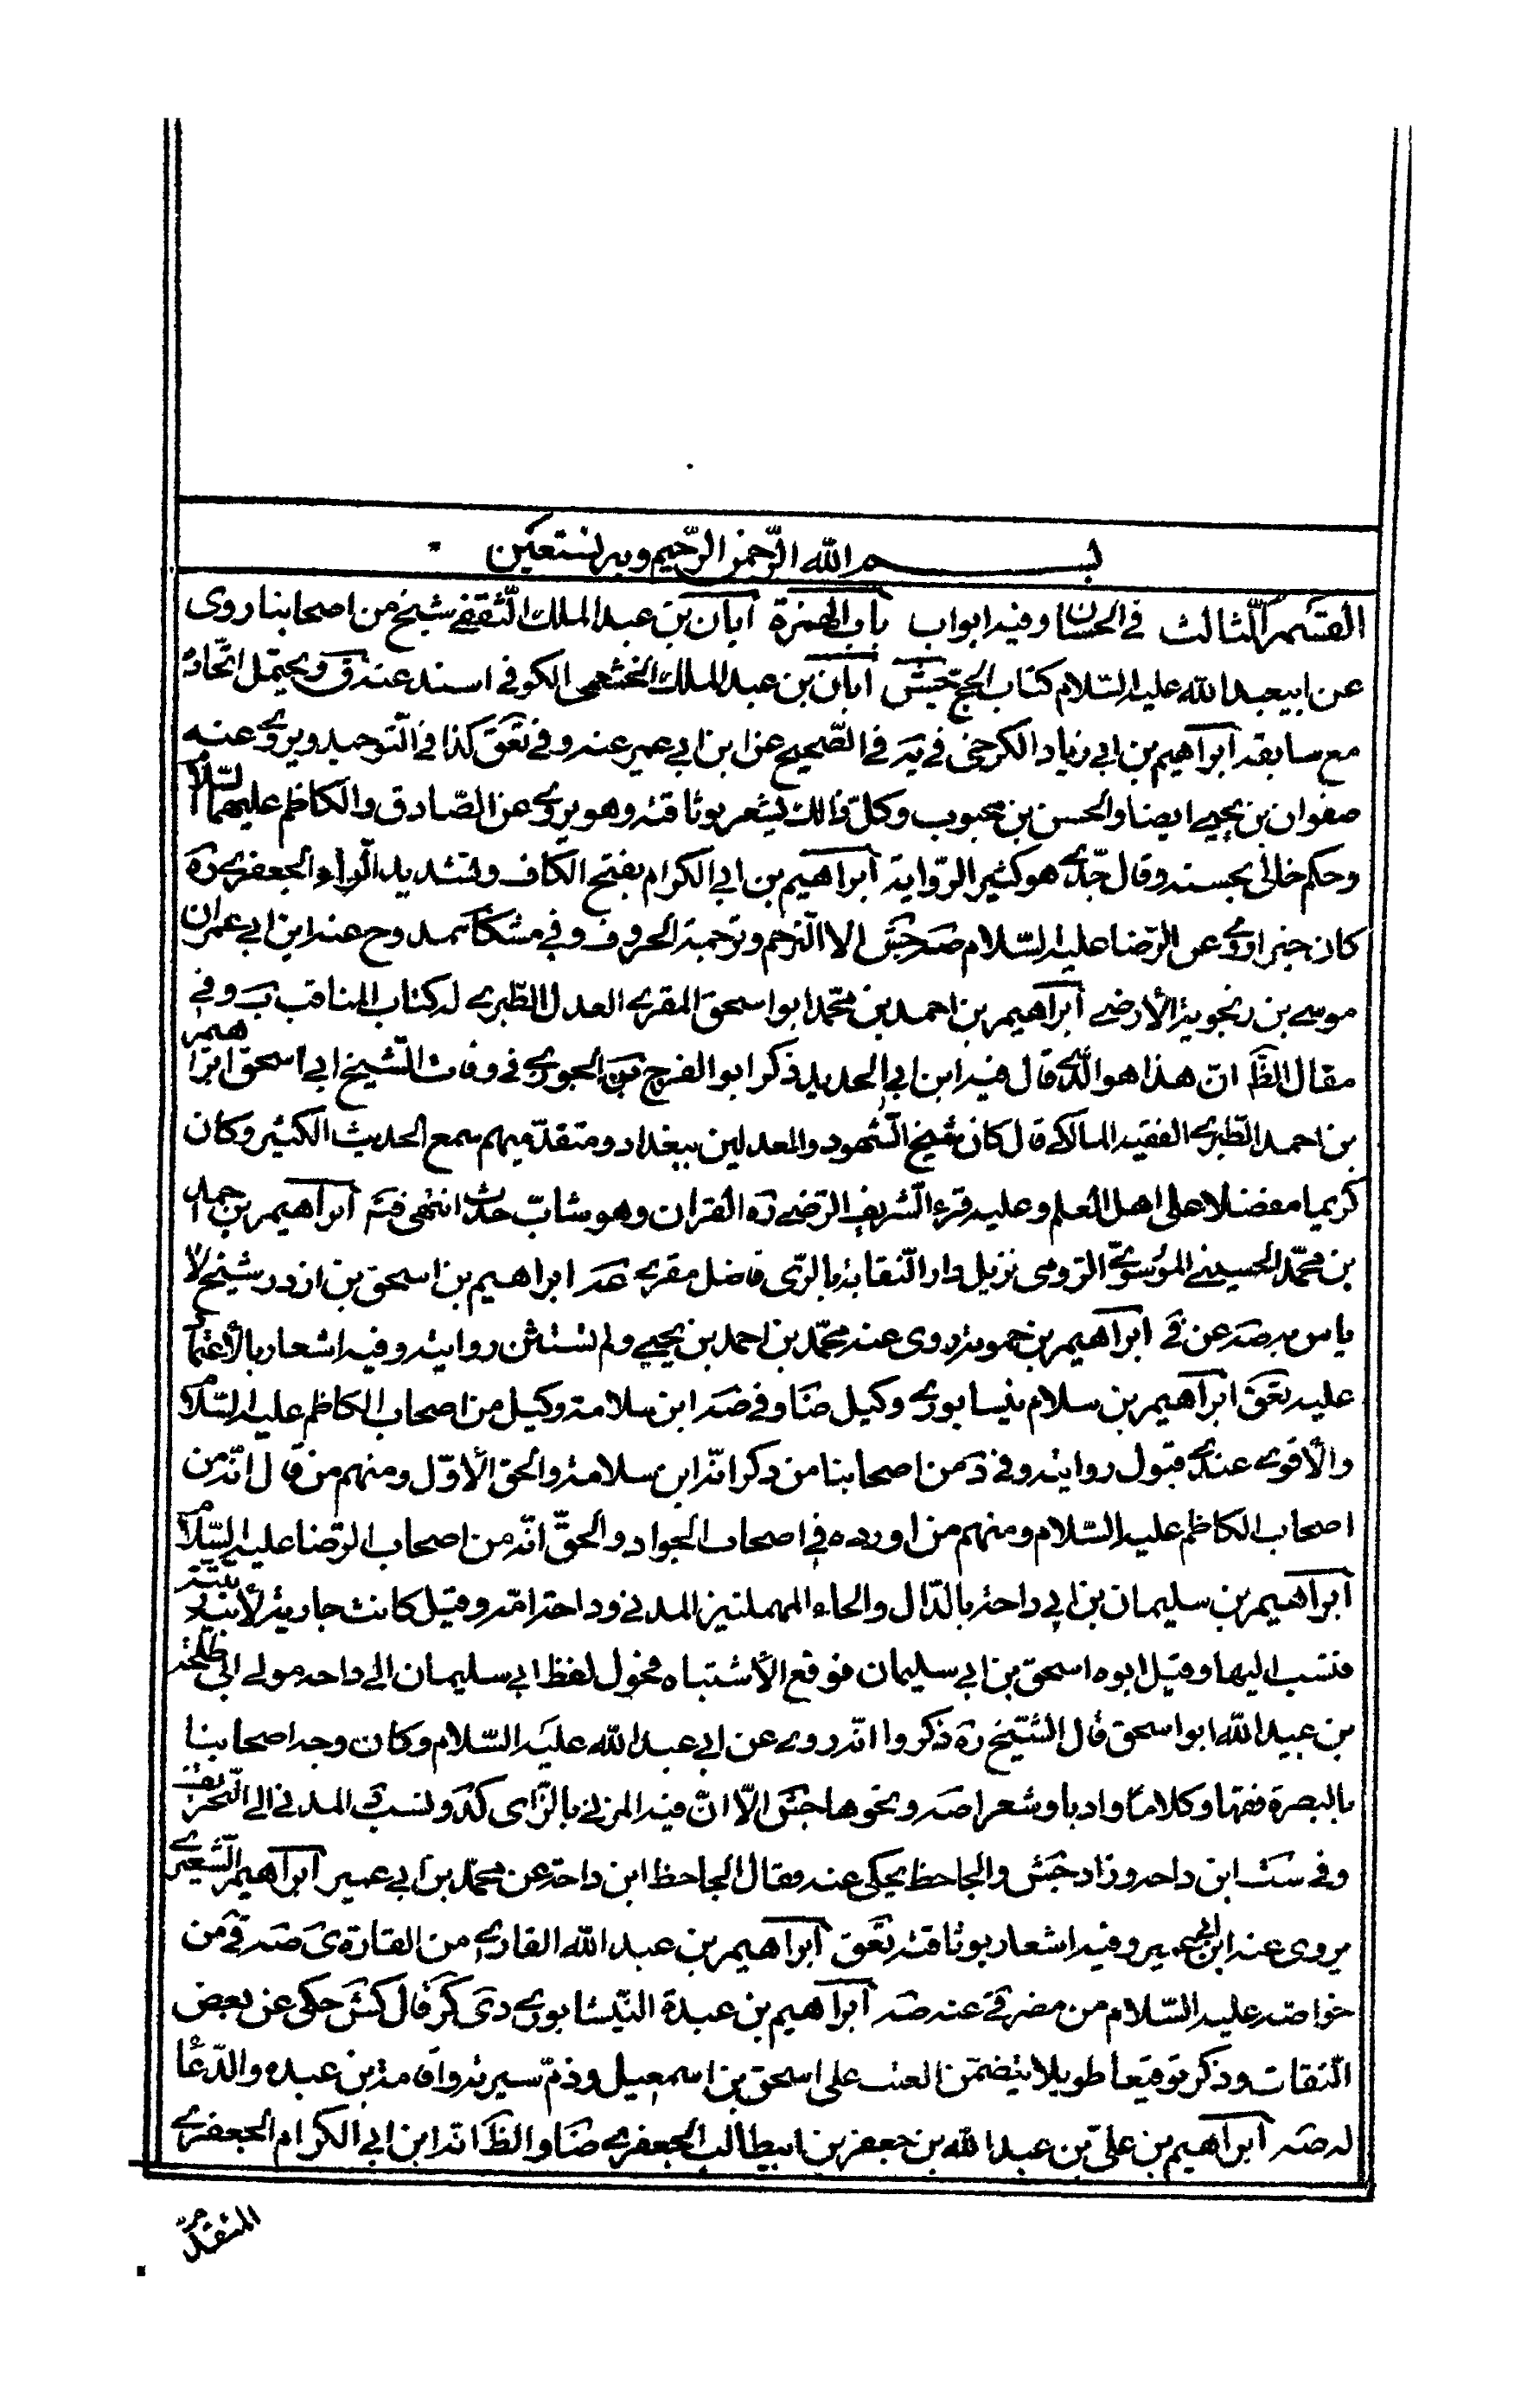 بسم الله الرّحمن الرّحيم وبه نستعين
القسم الثّالث في الحسان وفيه ابواب باب الهمزة ابان بن عبد الملك الثّقفي شيخ من اصحابنا روى
عن ابيعبد الله عليه السّلام كتاب الحجّ جش ابان بن عبد الملك الخثعمي الكوفي اسند عنه ق ويحتمل اتّحاده
مع سابقه ابراهيم بن ابي زياد الكرخي في يه في الصّحيح عن ابن ابي عمير عنه وفي تعق كذا في التّوحيد ويروي عنه
صفوان بن يحيى ايضا والحسن بن محبوب وكلّ ذلك يشعر بوثاقته وهو يروي عن الصّادق والكاظم عليهما السّلام
وحكم خالي بحسنه وقال جدّي هو كثير الرّواية ابراهيم بن ابي الكرام بفتح الكاف وتشديد الرّاء الجعفري ره
كان خيرا روى عن الرّضا عليه السّلام صه جش الا التّرحم وترجمة الحروف وفي مشكا ممدوح عنه ابن ابي عمران
موسى بن رنجويه الأرضي ابراهيم بن احمد بن محمّد ابو اسحق المقري العدل الطّبري له كتاب المناقب ب وفي
مقال الظّ انّ هذا هو الّذي قال فيه ابن ابي الحديد ذكر ابو الفرج بن الجوزي في وفات الشّيخ ابي اسحق ابراهيم
بن احمد الطّبري الفقيه المالكي قال كان شيخ الشّهود والمعدلين ببغداد ومتقدّميهم سمع الحديث الكثير وكان
كريما مفضلا على اهل العلم وعليه قرء الشّريف الرّضي ره القران وهو شابّ حدث انتهى فتم ابراهيم بن حمد
بن محمّد الحسيني الموسوي الرّومي نزيل دار النّقابة بالرّي فاضل مقري عه ابراهيم بن اسحق بن ازدر شيخ لا
باس به صه عن قي ابراهيم بن حمويه روى عنه محمّد بن احمد بن يحيى ولم تستثن روايته وفيه اشعار بالأعتماد
عليه تعق ابراهيم بن سلام نيسابوري وكيل ضا وفي صه ابن سلامة وكيل من اصحاب الكاظم عليه السّلام
والأقوى عندي قبول روايته وفي د من اصحابنا من ذكر انّه ابن سلامة والحق الأوّل ومنهم من قال انّه من
اصحاب الكاظم عليه السّلام ومنهم من اورده في اصحاب الجواد والحقّ انّه من اصحاب الرّضا عليه السّلام
ابراهيم بن سليمان بن ابي داحة بالدّال والحاء المهملتين المدني وداحة امّه وقيل كانت جارية لأبيه ربّته
فنسب اليها وقيل ابوه اسحق بن ابي سليمان فوقع الأشتباه فحول لفظ ابي سليمان الى داحه مولى ال طلحة
بن عبيد الله ابو اسحق قال الشّيخ ره ذكروا انّه روى عن ابي عبد الله عليه السّلام وكان وجه اصحابنا
بالبصرة فقها وكلاما وادبا وشعرا صه ونحوها جش الّا انّ فيه المزني بالزّاي كد ونسب المدني الى التّحريف
وفي ست ابن داحه وزاد جش والجاحظ يحكي عنه وقال الجاحظ ابن داحة عن محمّد بن ابي عمير ابراهيم الشّعيري
يروي عنه ابن ابي عمير وفيه اشعار بوثاقته تعق ابراهيم بن عبد الله القاري من القارة ي صه قي من
خواصه عليه السّلام من مضر قي عنه صه ابراهيم بن عبدة النّيشابوري دي كر قال كش حكى عن بعض
الثّقات وذكر توقيعا طويلا يتضمّن العتب على اسحق بن اسمعيل وذمّ سيرته واقامة بن عبده والدّعاء
له صه ابراهيم بن عليّ بن عبد الله بن جعفر بن ابيطالب الجعفري ضا والظّ انّه ابن ابي الكرام الجعفري
المتقدّم